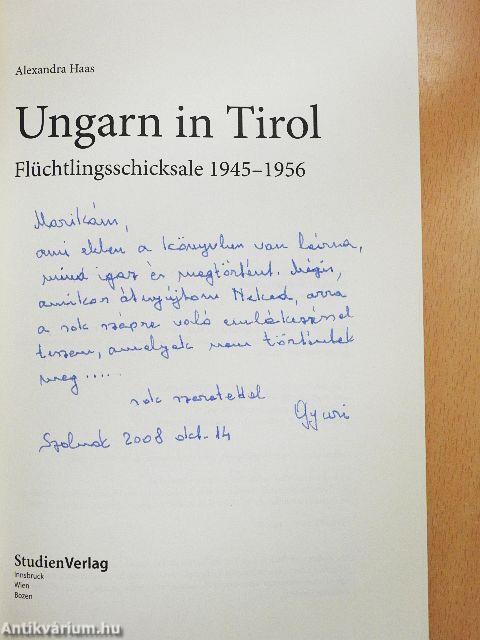 Alexandra Haas
Ungarn in Tirol
Flüchtlingsschicksale 1945–1956
Marikám,
ami ebben a könyvben van leírva,
mind igaz és megtörtént. Mégis,
amikor átnyújtom Neked, arra
a sok szépre való emlékezéssel
teszem, amelyek nem történtek
meg.....
sok szeretettel
Gyuri
Szolnok 2008 okt. 14
StudienVerlag
Innsbruck
Wien
Bozen
Antikvárium.hu